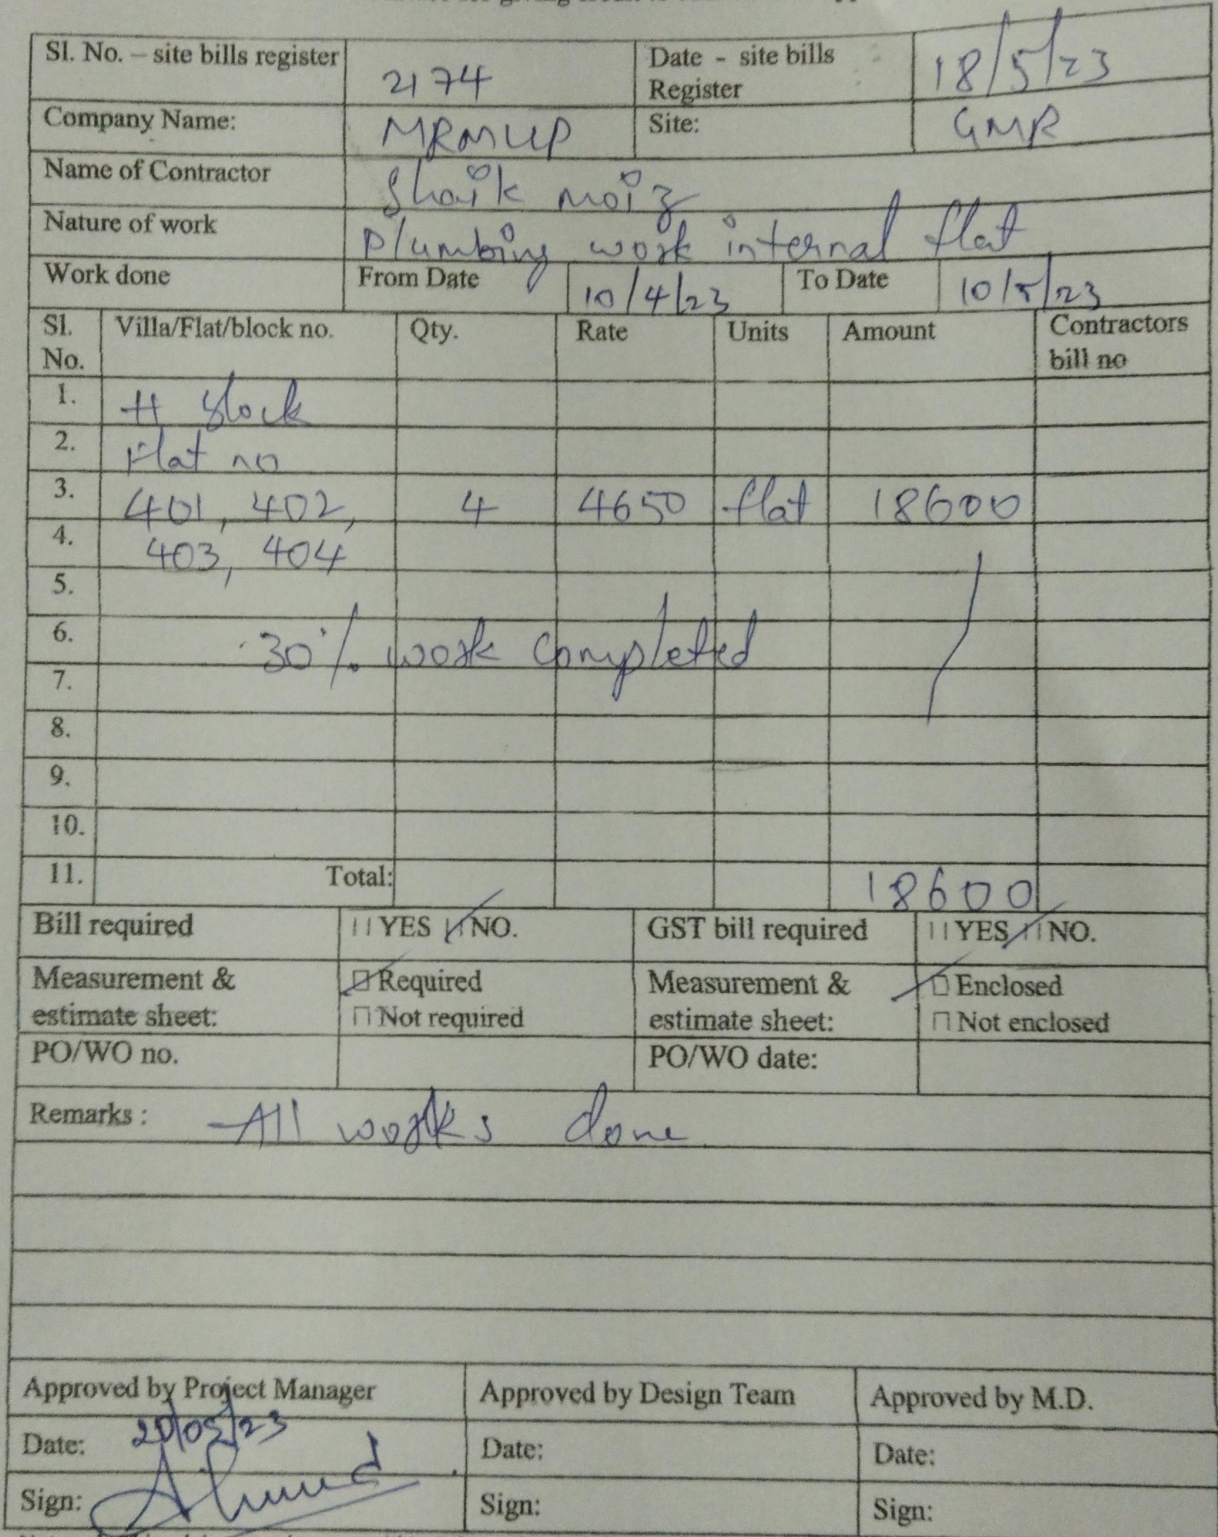 Sl. No. – site bills register 2174 Date - site bills Register 18/5/23
Company Name: MRMUP Site: GMR
Name of Contractor Shaik moiz
Nature of work Plumbing work internal flat
Work done From Date 10/4/23 To Date 10/5/23
Sl. No. Villa/Flat/block no. Qty. Rate Units Amount Contractors bill no
1. H block
2. Flat no
3. 401, 402, 4 4650 flat 18600
4. 403, 404
5.
6. 30% work completed
7.
8.
9.
10.
11. Total: 18600
Bill required YES NO. GST bill required YES NO.
Measurement & estimate sheet: Required Measurement & estimate sheet: Enclosed
Not required Not enclosed
PO/WO no. PO/WO date:
Remarks : All works done
Approved by Project Manager Approved by Design Team Approved by M.D.
Date: 20/05/23 Date: Date:
Sign: Sign: Sign: